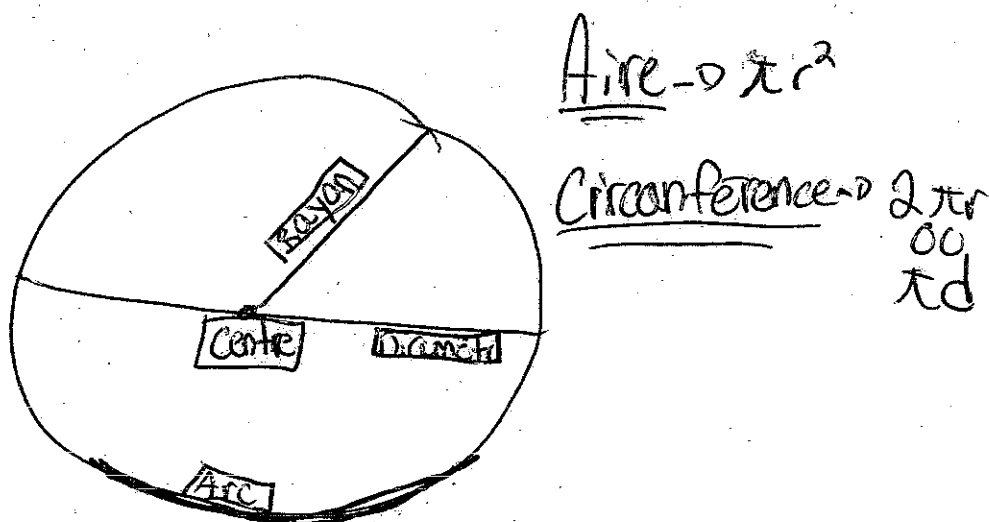 Aire → πr²
Circonférence → 2πr
ou
πd
Rayon
Centre
Diamètr
Arc